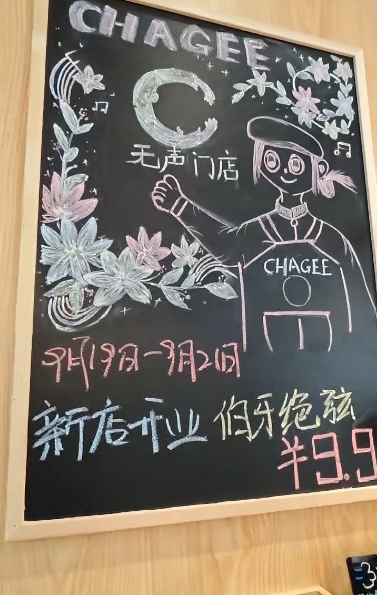 CHAGEE
无声门店
CHAGEE
9月19日-9月21日
新店开业 伯牙绝弦
¥9.9